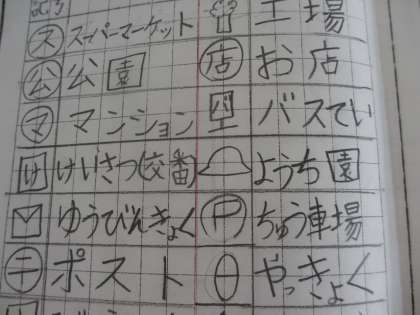 ス スーパーマーケット 工場
公 公園 店 お店
マ マンション バ バスてい
け けいさつ(交番) ようち園
ゆうびんきょく P ちゅう車場
〒 ポスト やっきょく